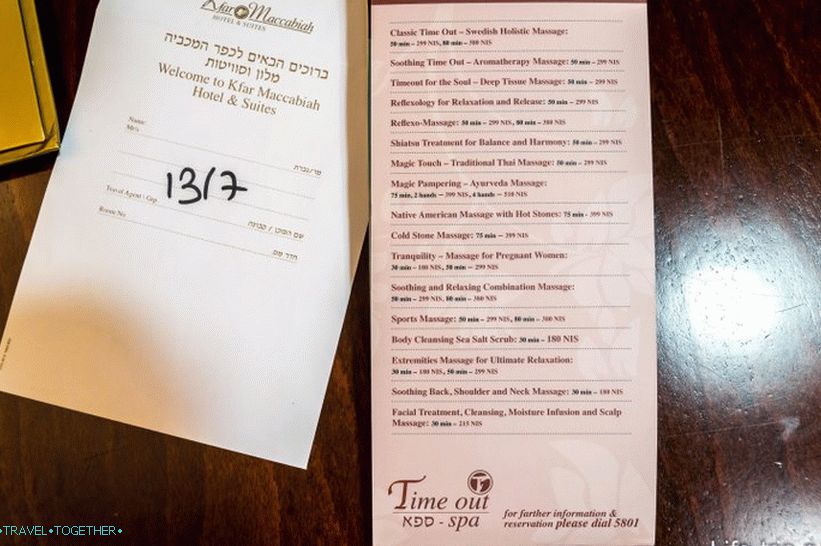 Kfar Maccabiah
HOTEL & SUITES
ברוכים הבאים לכפר המכביה
מלון וסוויטות
Welcome to Kfar Maccabiah
Hotel & Suites
Name:
Mr/s
מר/גברת
13/7
Travel Agent / Grp.
שם הסוכן / קבוצה
Room No
חדר מס'
Classic Time Out – Swedish Holistic Massage:
50 min – 299 NIS, 80 min – 380 NIS
Soothing Time Out – Aromatherapy Massage: 50 min – 299 NIS
Timeout for the Soul – Deep Tissue Massage: 50 min – 299 NIS
Reflexology for Relaxation and Release: 50 min – 299 NIS
Reflexo-Massage: 50 min – 299 NIS, 80 min – 380 NIS
Shiatsu Treatment for Balance and Harmony: 50 min – 299 NIS
Magic Touch – Traditional Thai Massage: 50 min – 299 NIS
Magic Pampering – Ayurveda Massage:
75 min, 2 hands – 399 NIS, 4 hands – 510 NIS
Native American Massage with Hot Stones: 75 min – 399 NIS
Cold Stone Massage: 75 min – 399 NIS
Tranquility – Massage for Pregnant Women:
30 min – 180 NIS, 50 min – 299 NIS
Soothing and Relaxing Combination Massage:
50 min – 299 NIS, 80 min – 380 NIS
Sports Massage: 50 min – 299 NIS, 80 min – 380 NIS
Body Cleansing Sea Salt Scrub: 30 min – 180 NIS
Extremities Massage for Ultimate Relaxation:
30 min – 180 NIS, 50 min – 299 NIS
Soothing Back, Shoulder and Neck Massage: 30 min – 180 NIS
Facial Treatment, Cleansing, Moisture Infusion and Scalp
Massage: 30 min – 215 NIS
Time out
ספא - spa
for farther information &
reservation please dial 5801
•TRAVEL•TOGETHER•